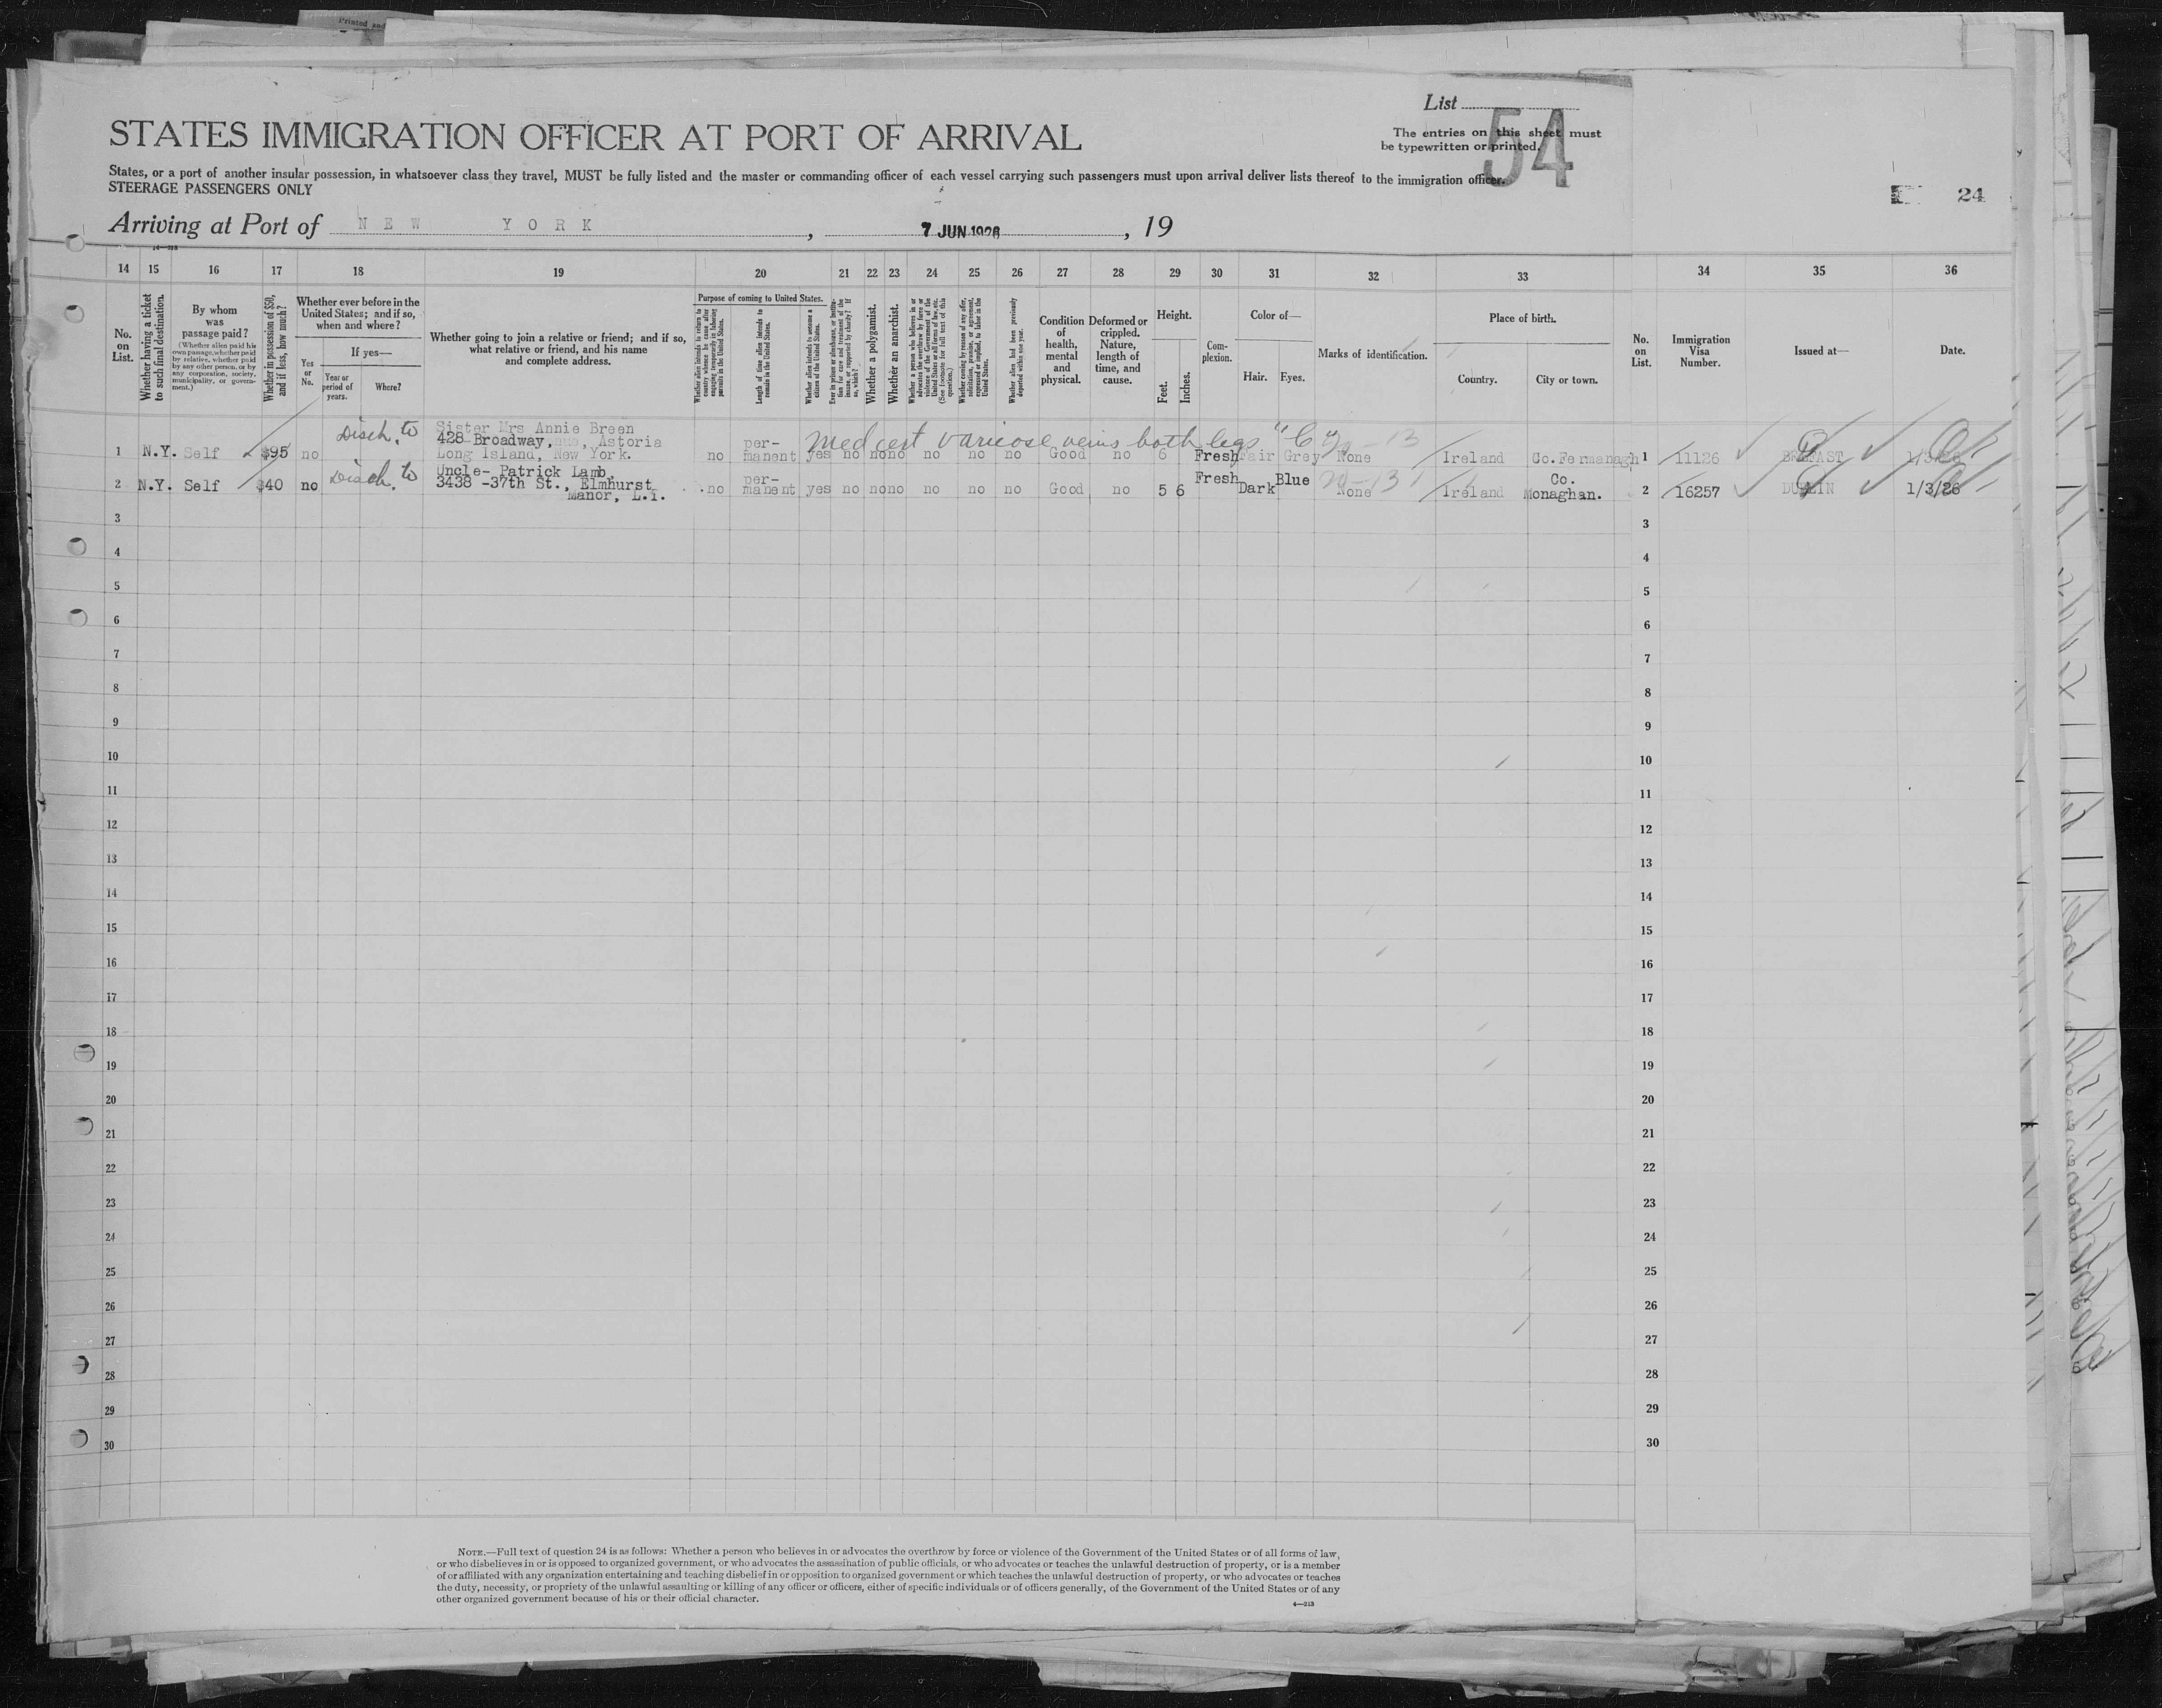 Printed and
List
54
The entries on this sheet must
be typewritten or printed.
STATES IMMIGRATION OFFICER AT PORT OF ARRIVAL
States, or a port of another insular possession, in whatsoever class they travel, MUST be fully listed and the master or commanding officer of each vessel carrying such passengers must upon arrival deliver lists thereof to the immigration officer.
STEERAGE PASSENGERS ONLY
24
Arriving at Port of NEW YORK, 7 JUN 1926, 19
14 15 16 17 18 19 20 21 22 23 24 25 26 27 28 29 30 31 32 33 34 35 36
No. on List.
Whether having a ticket to such final destination.
By whom was passage paid?
(Whether alien paid his own passage, whether paid by relative, whether paid by any other person, or by any corporation, society, municipality, or government.)
Whether in possession of $50, and if less, how much?
Whether ever before in the United States; and if so, when and where?
Yes or No.
If yes—
Year or period of years.
Where?
Whether going to join a relative or friend; and if so, what relative or friend, and his name and complete address.
Purpose of coming to United States.
Whether alien intends to return to country whence he came after engaging temporarily in laboring pursuits in the United States.
Length of time alien intends to remain in the United States.
Whether alien intends to become a citizen of the United States.
Ever in prison or almshouse, or institution for care and treatment of the insane, or supported by charity? If so, which?
Whether a polygamist.
Whether an anarchist.
Whether a person who believes in or advocates the overthrow by force or violence of the Government of the United States or all forms of law, etc. (See footnote for full text of this question.)
Whether coming by reason of any offer, solicitation, promise, or agreement, expressed or implied, to labor in the United States.
Whether alien had been previously deported within one year.
Condition of health, mental and physical.
Deformed or crippled. Nature, length of time, and cause.
Height.
Feet.
Inches.
Complexion.
Color of—
Hair.
Eyes.
Marks of identification.
Place of birth.
Country.
City or town.
No. on List.
Immigration Visa Number.
Issued at—
Date.
Disch. to Sister Mrs Annie Breen
428 Broadway, Astoria med cert varicose veins both legs "C"
1 N.Y. Self $95 no Long Island, New York. no permanent yes no no no no no no Good no 6 Fresh Fair Grey None Ireland Co. Fermanagh 1 11126 BELFAST
Disch. to Uncle- Patrick Lamb,
2 N.Y. Self $40 no 3438 -37th St., Elmhurst Manor, L.I. no permanent yes no no no no no no Good no 5 6 Fresh Dark Blue None Ireland Co. Monaghan. 2 16257 DUBLIN 1/3/26
3 3
4 4
5 5
6 6
7 7
8 8
9 9
10 10
11 11
12 12
13 13
14 14
15 15
16 16
17 17
18 18
19 19
20 20
21 21
22 22
23 23
24 24
25 25
26 26
27 27
28 28
29 29
30 30
NOTE.—Full text of question 24 is as follows: Whether a person who believes in or advocates the overthrow by force or violence of the Government of the United States or of all forms of law,
or who disbelieves in or is opposed to organized government, or who advocates the assassination of public officials, or who advocates or teaches the unlawful destruction of property, or is a member
of or affiliated with any organization entertaining and teaching disbelief in or opposition to organized government or which teaches the unlawful destruction of property, or who advocates or teaches
the duty, necessity, or propriety of the unlawful assaulting or killing of any officer or officers, either of specific individuals or of officers generally, of the Government of the United States or of any
other organized government because of his or their official character.
4—213